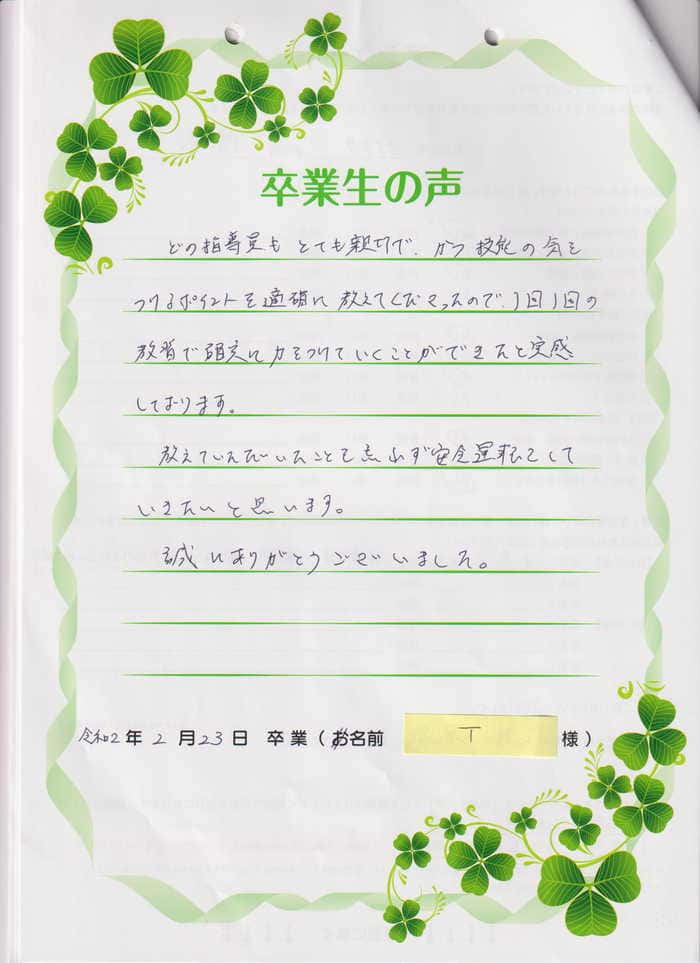 卒業生の声
どの指導員もとても親切で、かつ技能の気を
つけるポイントを適確に教えてくださったので、1回1回の
教習で確実に力をつけていくことができたと実感
しております。
教えていただいたことを忘れず安全運転をして
いきたいと思います。
誠にありがとうございました。
令和2年2月23日 卒業（お名前 T 様）